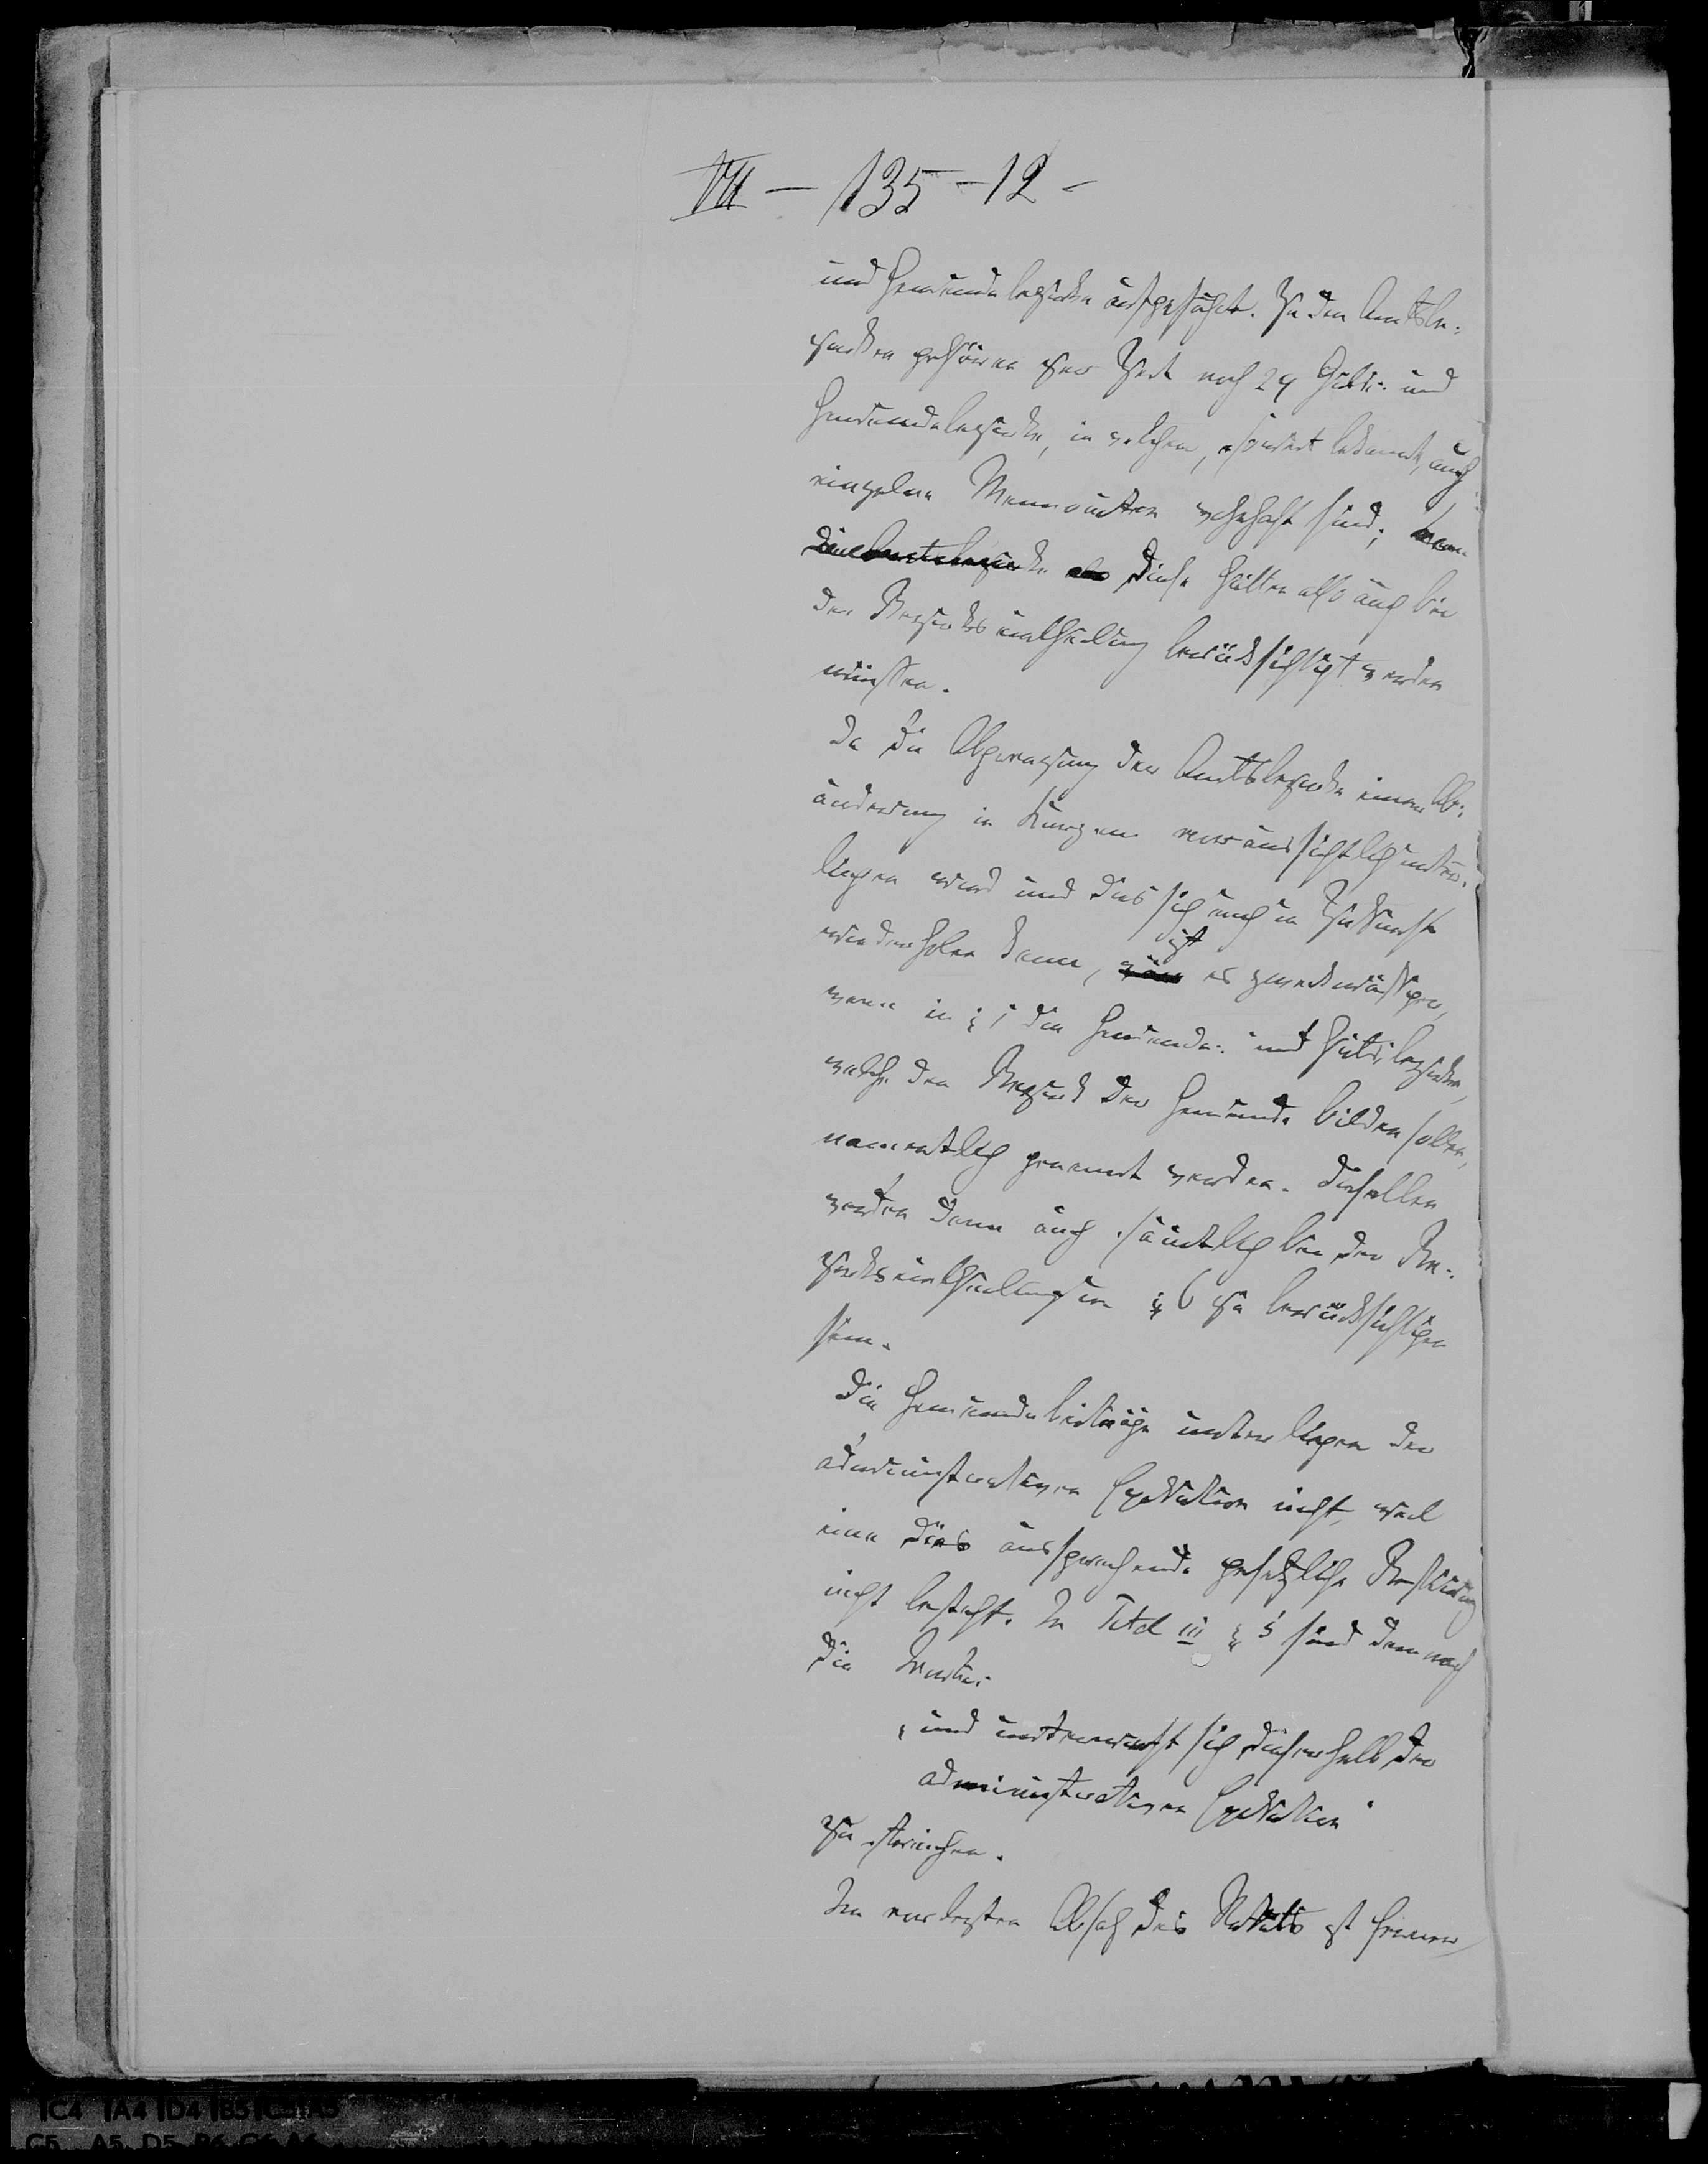 VII - 135 - 12 -
und Gemeindebezirke aufgeführt. Zu den Amtsbe-
zirken gehören zur Zeit noch 24 Guts- und
Gemeindebezirke, in welchen, soweit bekannt, auch
einzelne Mennoniten wohnhaft sind;
diese hätten also auch bei
der Bezirkseintheilung berücksichtigt werden
müssen.
Da die Abgrenzung der Amtsbezirke einer Ab-
änderung in Kurzem voraussichtlich unter-
liegen wird und dies sich auch in Zukunft
wiederholen kann, ist es zweckmäßiger,
wenn in § 1 die Gemeinde- und Gutsbezirke,
welche den Bezirk der Gemeinde bilden sollen,
namentlich genannt werden. Dieselben
werden dann auch sämtlich bei der Be-
zirkseintheilung im § 6 zu berücksichtigen
sein.
Die Gemeindebeiträge unterliegen der
administrativen Exekution nicht, weil
eine dies aussprechende gesetzliche Bestimmung
nicht besteht. In Titel III § 5 sind demnach
die Worte:
„und unterwirft sich dieserhalb der
administrativen Exekution“
zu streichen.
Im vorletzten Absatz des Statuts ist ferner